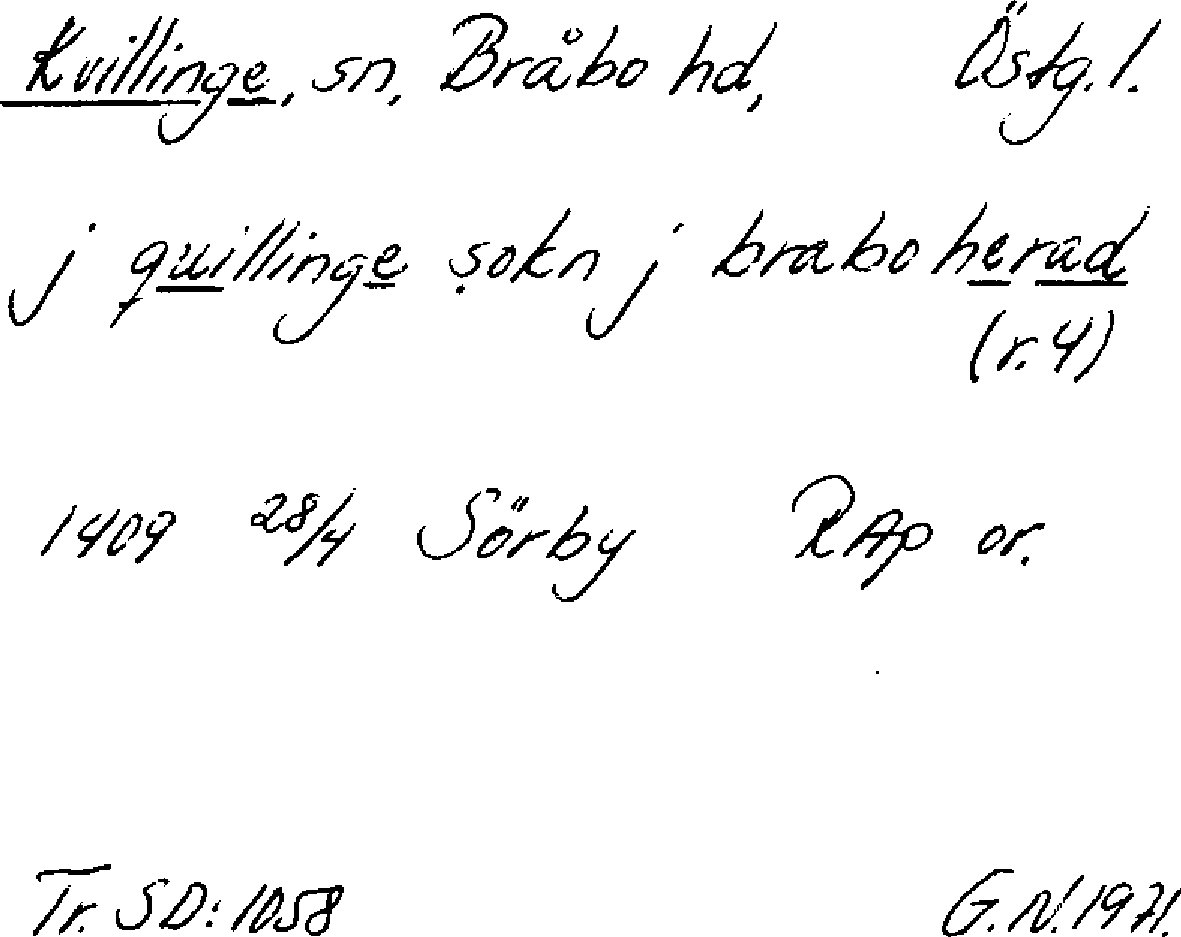 Kvillinge, sn, Bråbo hd, Östg.l.
j quillinge sokn j braboherad
(r.4)
1409 28/4 Sörby RAp or.
Tr. SD: 1058 G.N. 1971.